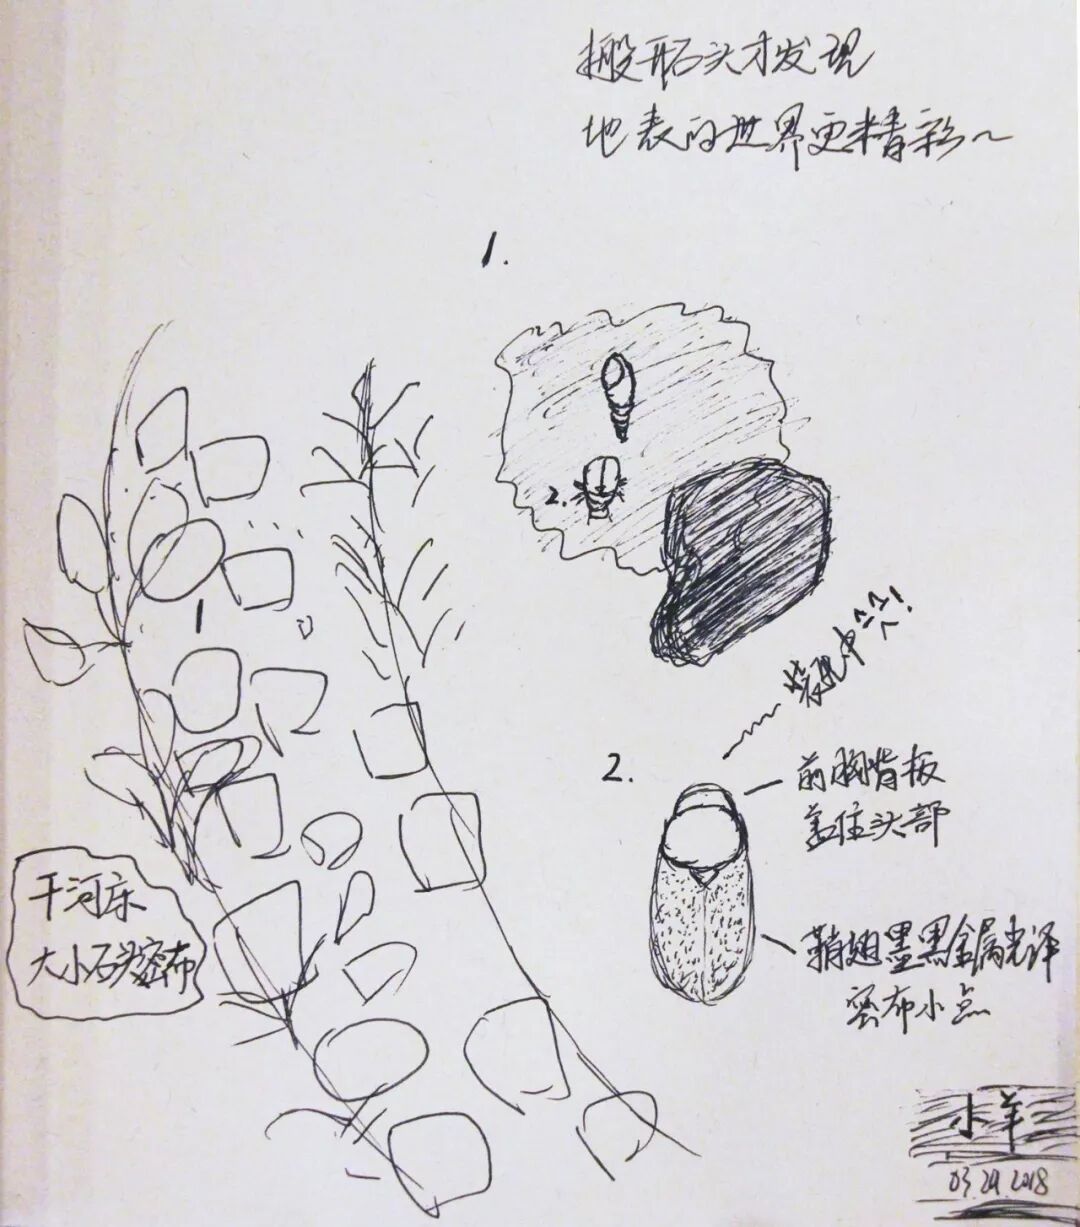 搬开石头才发现
地表的世界更精彩~
1.
2.
1
干河床
大小石头密布
2.
前胸背板
盖住头部
鞘翅墨黑金属光泽
密布小点
小羊
03.24.2018